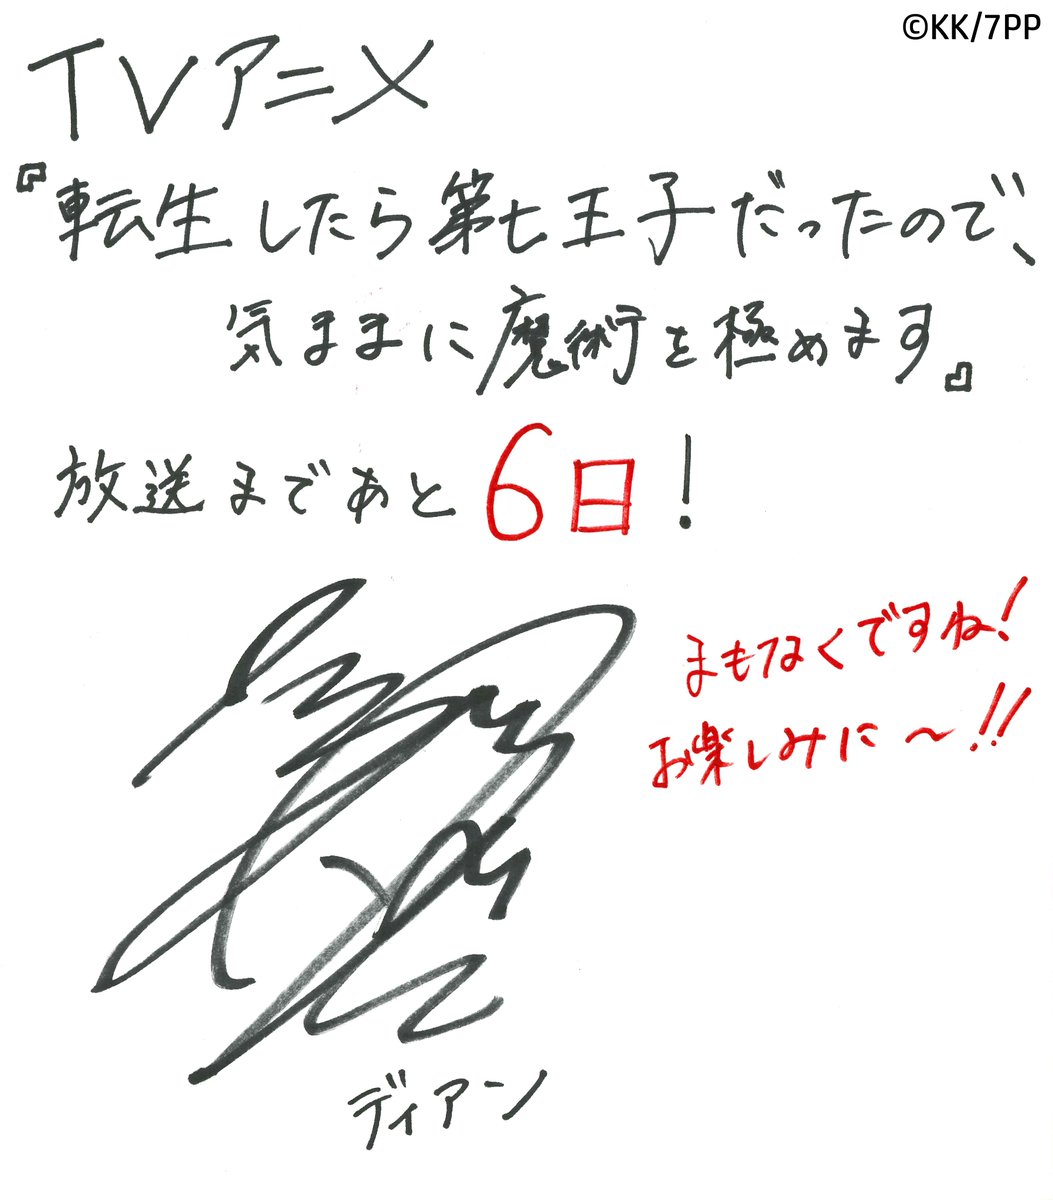 ©KK/7PP
TVアニメ
『転生したら第七王子だったので、
気ままに魔術を極めます』
放送まであと6日!
まもなくですね!
お楽しみに〜!!
ディアン